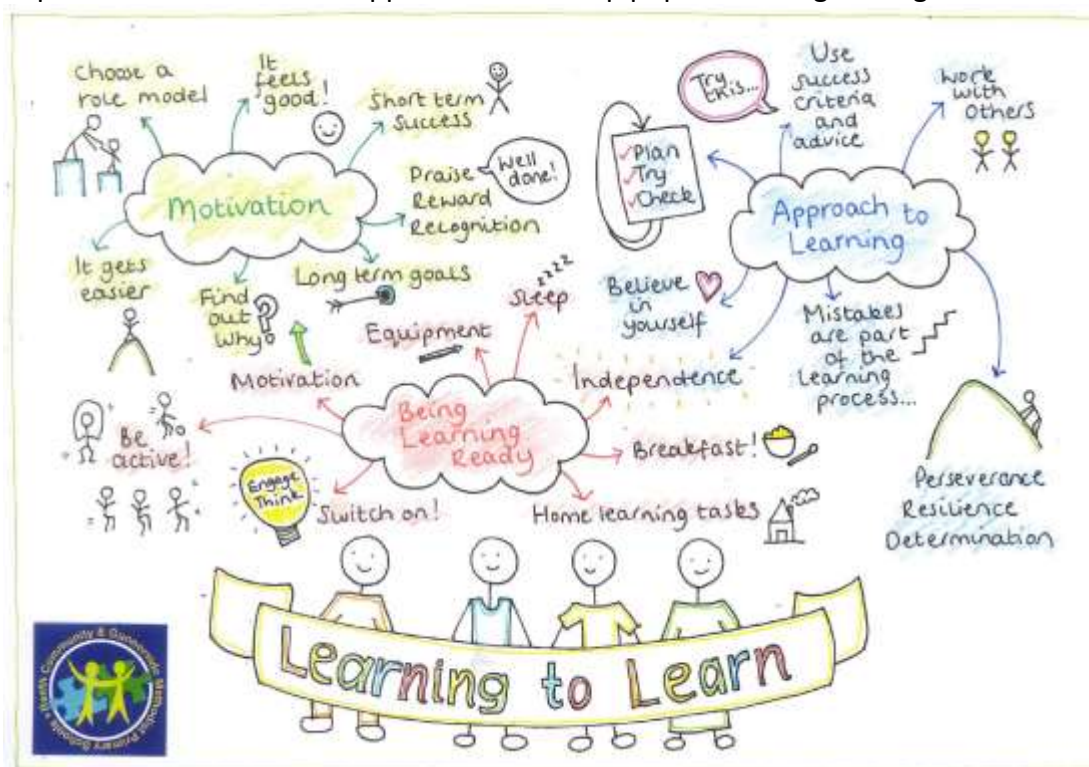 Choose a
role model
It
feels
good!
Short term
Success
Praise
Reward
Recognition
Well
done!
Motivation
It gets
easier
Find
out
why?
Long term goals
Try
this...
Use
success
criteria
and
advice
Work
with
Others
Plan
Try
Check
Approach to
Learning
Believe
in
yourself
Mistakes
are part
of the
learning
process...
Perseverance
Resilience
Determination
Motivation
Equipment
zzzz
Sleep
Independence
Being
Learning
Ready
Be
active!
Engage
Think
Switch on!
Breakfast!
Home learning tasks
Learning to Learn
Community &
Methodist
Primary Schools